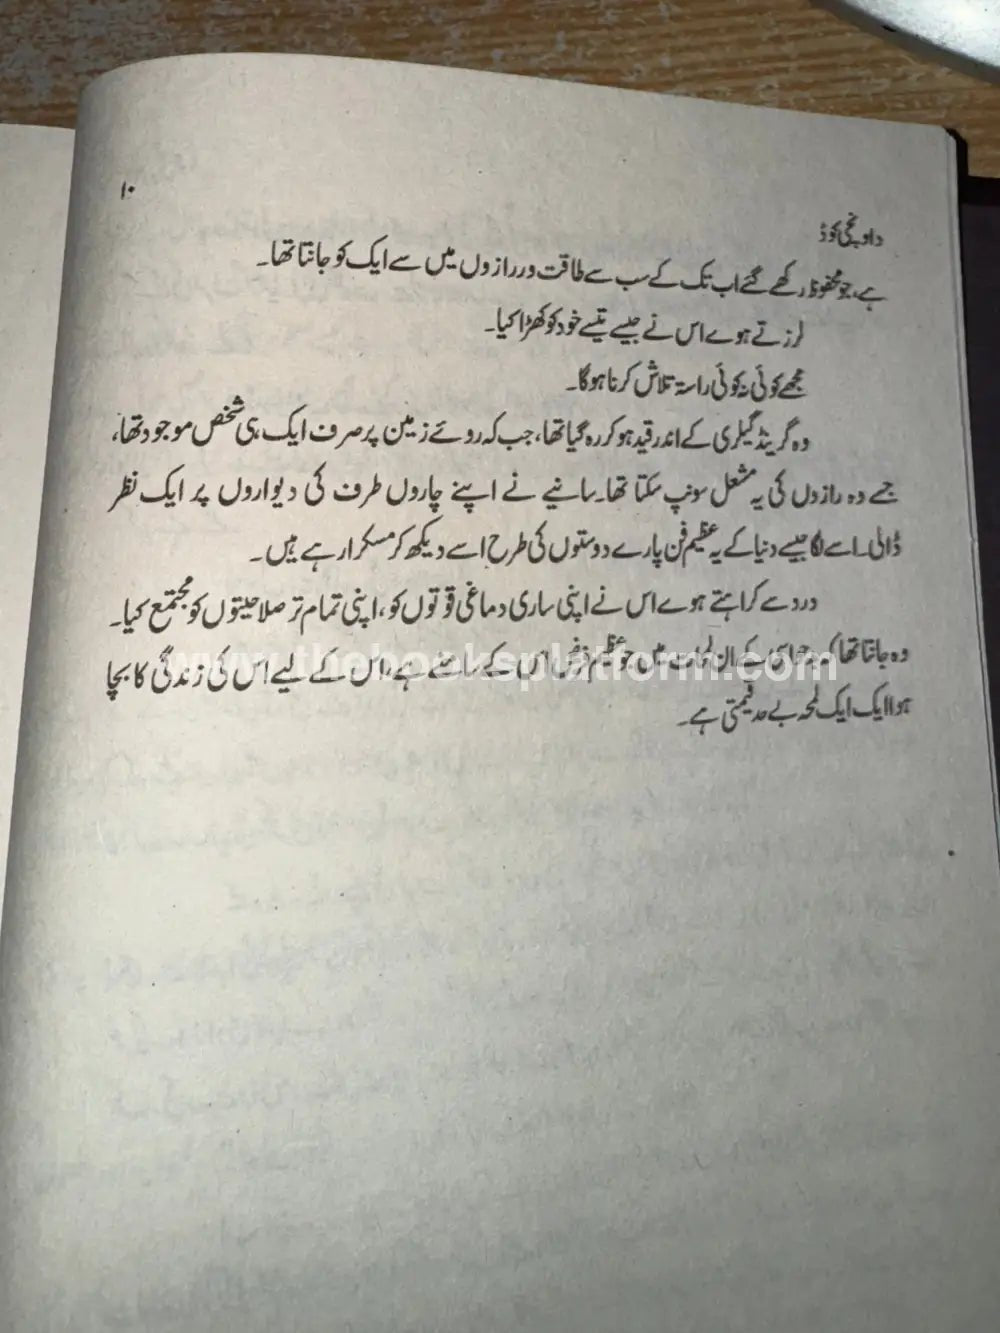 ۱۰
داونچی کوڈ
ہے، جو محفوظ رکھے گئے اب تک کے سب سے طاقت ور رازوں میں سے ایک کو جانتا تھا۔
لرزتے ہوے اس نے جیسے تیسے خود کو کھڑا کیا۔
مجھے کوئی نہ کوئی راستہ تلاش کرنا ہوگا۔
وہ گرینڈ گیلری کے اندر قید ہو کر رہ گیا تھا، جب کہ روئے زمین پر صرف ایک ہی شخص موجود تھا،
جسے وہ رازوں کی یہ مشعل سونپ سکتا تھا۔ سانیے نے اپنے چاروں طرف کی دیواروں پر ایک نظر
ڈالی۔ اسے لگا جیسے دنیا کے یہ عظیم فن پارے دوستوں کی طرح اسے دیکھ کر مسکرا رہے ہیں۔
درد سے کراہتے ہوے اس نے اپنی ساری دماغی قوتوں کو، اپنی تمام تر صلاحیتوں کو مجتمع کیا۔
وہ جانتا تھا کہ ان لمحات میں جو عظیم فرض اس کے سامنے ہے، اس کے لیے اس کی زندگی کا بچا
www.thebooksplatform.com
ہوا ایک ایک لمحہ بے حد قیمتی ہے۔